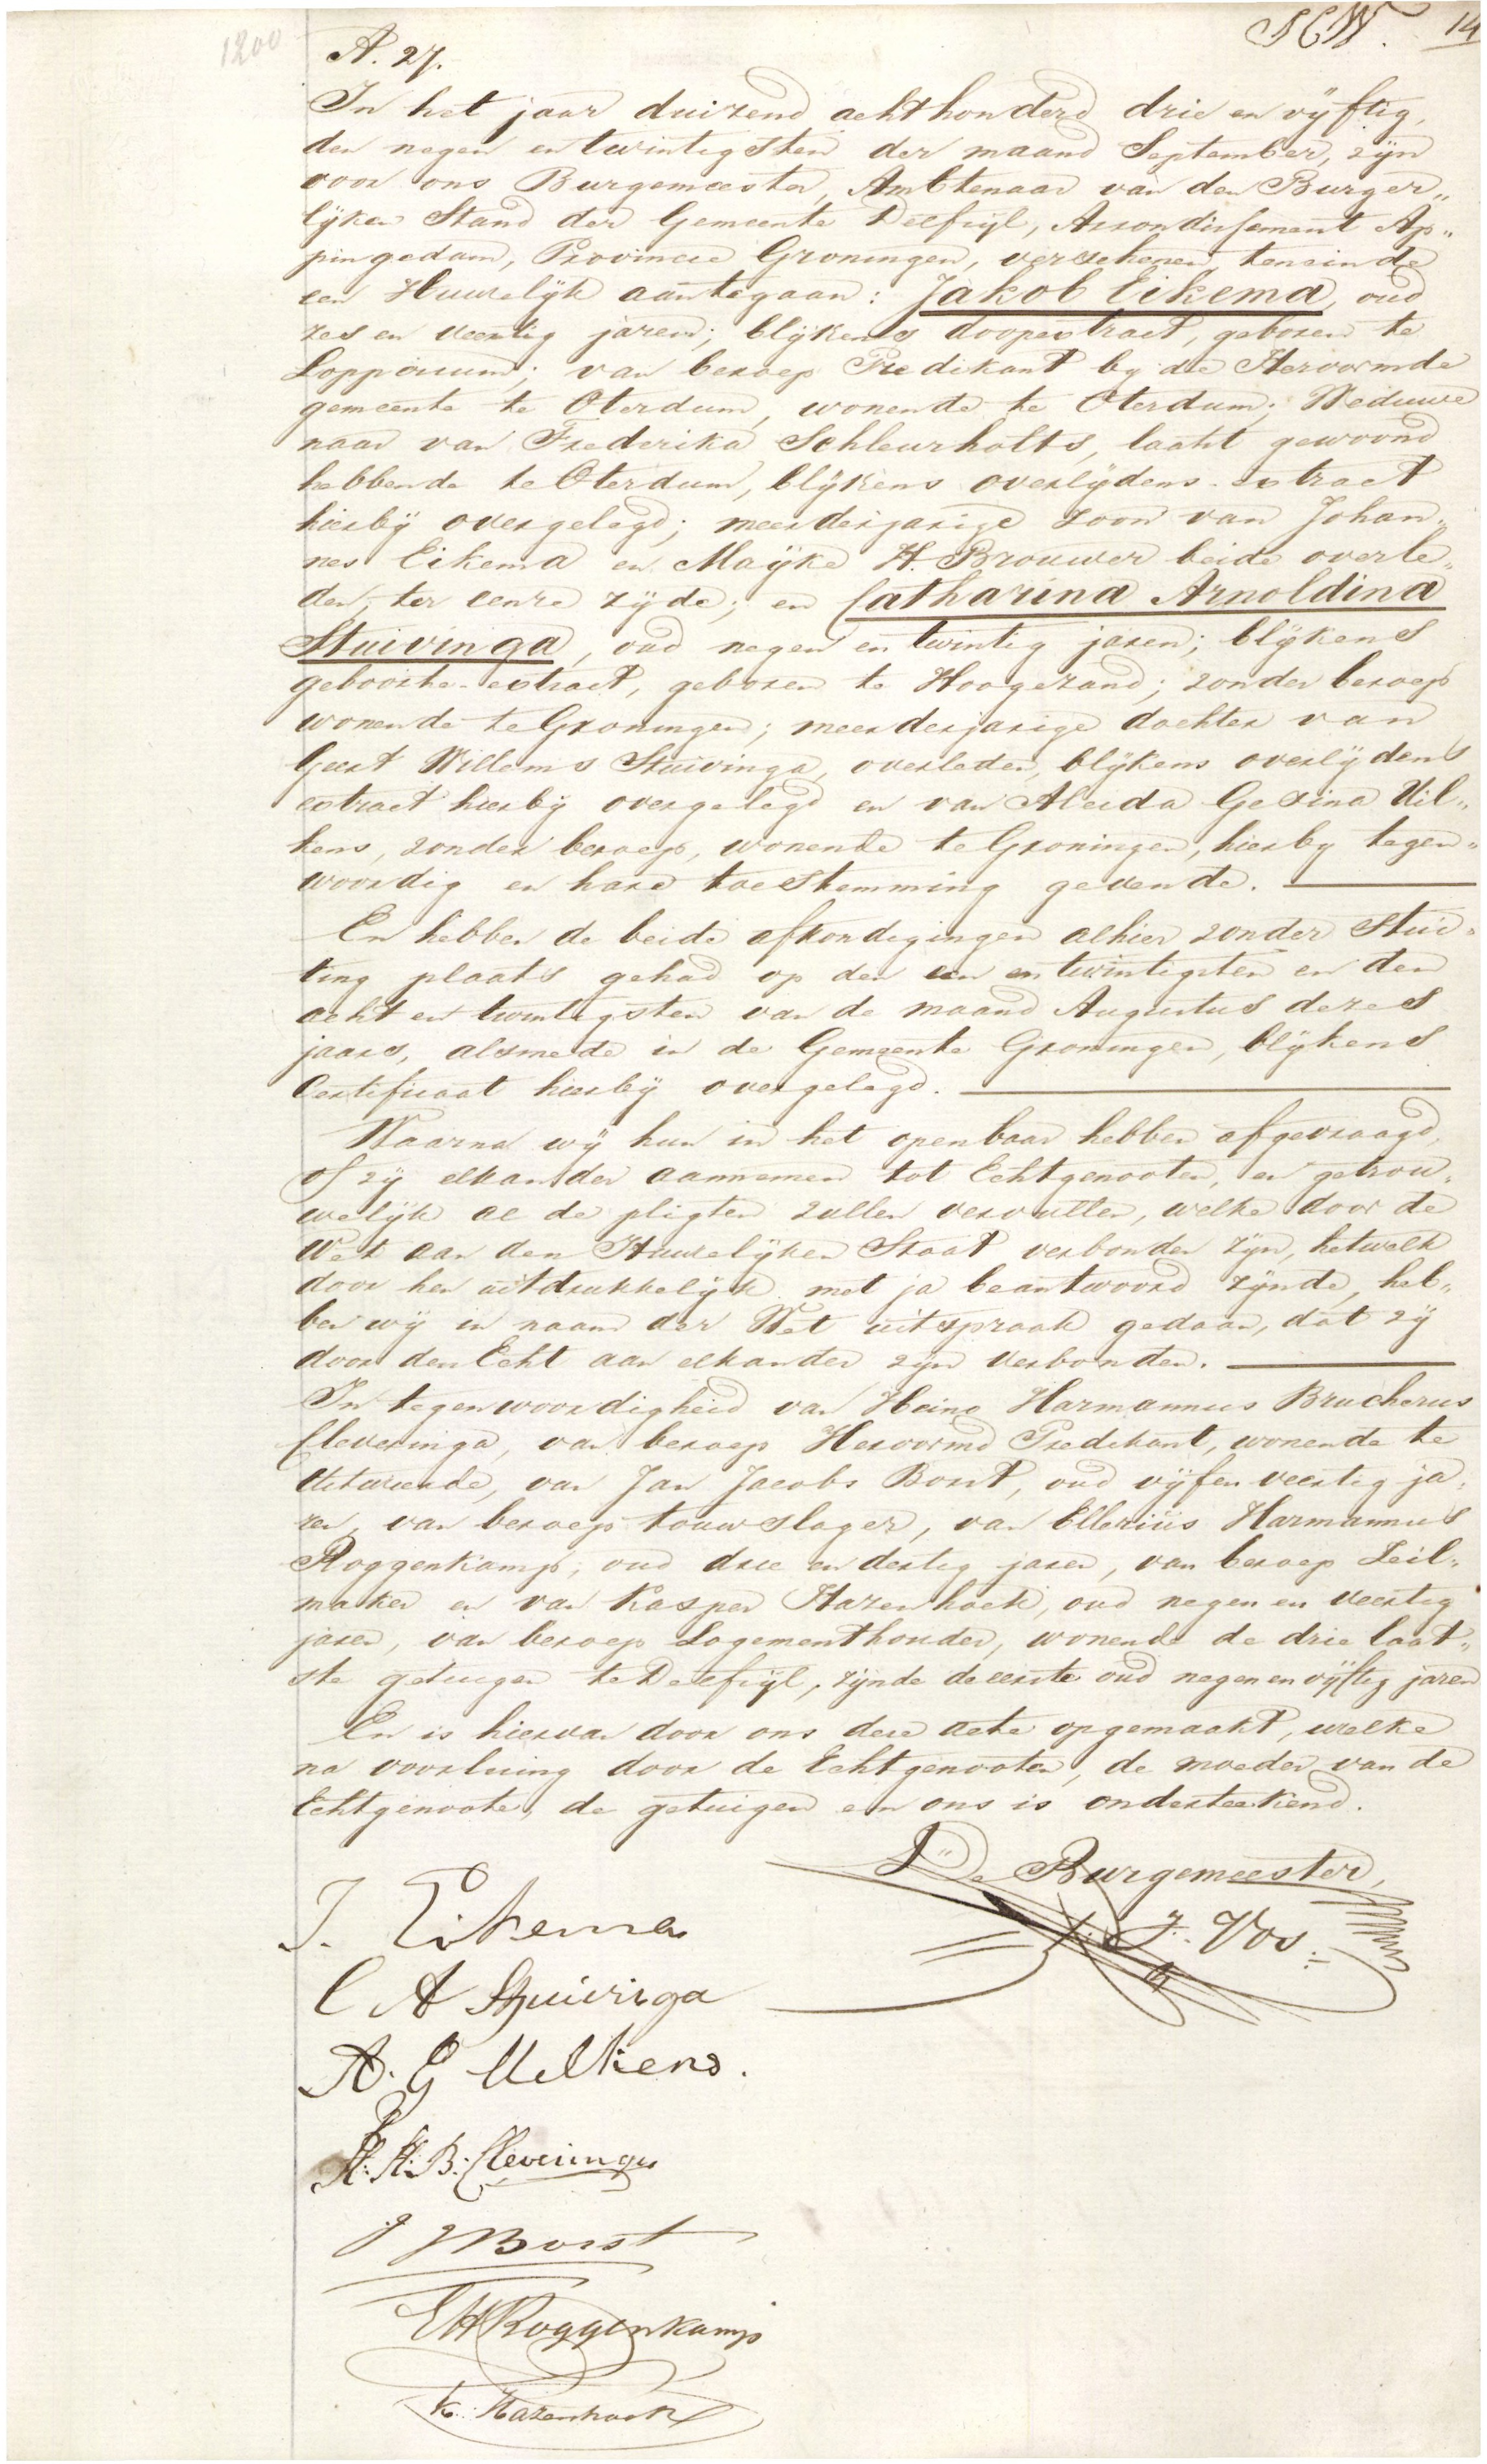 1200
A. 27.
14
In het jaar duizend achthonderd drie en vijftig,
den negen en twintigsten der maand September, zijn
voor ons Burgemeester, Ambtenaar van den Burger„
lijken Stand der Gemeente Delfzijl, Arrondissement Ap„
pingedam, Provincie Groningen, verschenen, teneinde
een Huwelijk aantegaan: Jakob Eikema, oud
zes en veertig jaren; blijkens doopextract, geboren te
Loppersum; van beroep Predikant by de Hervormde
gemeente te Oterdum, wonende te Oterdum; Weduwe
naar van Frederika Schleurholts, laatst gewoond
hebbende te Oterdum, blijkens overlijdens-extract
hierbij overgelegd; meerderjarige zoon van Johan„
nes Eikema en Maijke H. Brouwer beide overle„
den, ter eenre zijde; en Catharina Arnoldina
Stuivinga, oud negen en twintig jaren; blijkens
geboorte-extract, geboren te Hoogezand; zonder beroep
wonende te Groningen; meerderjarige dochter van
Geert Willems Stuivinga, overleden, blijkens overlijdens
extract hierbij overgelegd en van Aleida Gezina Uil„
kens, zonder beroep, wonende te Groningen, hierby tegen„
woordig en hare toestemming gevende.
En hebben de beide afkondigingen alhier zonder Stui„
ting plaats gehad op den een en twintigsten en den
acht en twintigsten van de maand Augustus dezes
jaars, alsmede in de Gemeente Groningen, blijkens
Certificaat hierbij overgelegd.
Waarna wij hun in het openbaar hebben afgevraagd,
of zij elkander aannemen tot Echtgenooten, en getrou„
welijk al de pligten zullen vervullen, welke door de
Wet aan den Huwelijken Staat verbonden zijn, hetwelk
door hen uitdrukkelijk met ja beantwoord zijnde, heb„
ben wij in naam der Wet uitspraak gedaan, dat zij
door den Echt aan elkander zijn verbonden.
In tegenwoordigheid van Heino Harmannus Brucherus
Cleveringa, van beroep Hervormd Predikant, wonende te
van Jan Jacobs Borst, oud vijf en veertig ja„
ren, van beroep touwslager, van Ellerius Harmannus
Roggenkamp, oud drie en dertig jaren, van beroep Zeil„
maker en van Kasper Hazenhoek, oud negen en veertig
jaren, van beroep Logementhouder, wonende de drie laat„
ste getuigen te Delfzijl, zijnde de eerste oud negen en vijftig jaren
En is hiervan door ons deze acte opgemaakt, welke
na voorlezing door de Echtgenooten, de moeder van de
Echtgenoote, de getuigen en ons is onderteekend.
De Burgemeester,
J. Vos
J. Eikema
C A Stuivinga
A. G Uilkens.
H. H. B. Cleveringa
J J Borst
EH Roggenkamp
K. Hazenhoek